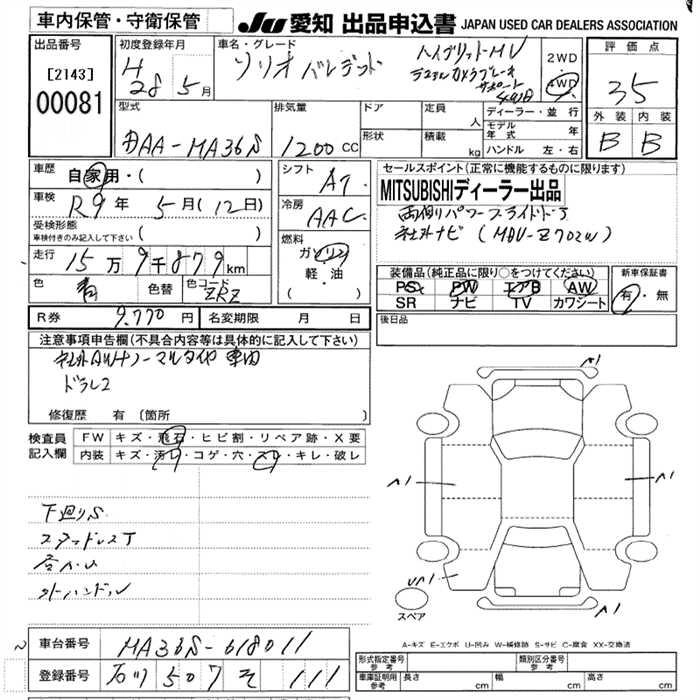 車内保管・守衛保管
JU 愛知 出品申込書 JAPAN USED CAR DEALERS ASSOCIATION
出品番号
[2143]
00081
初度登録年月
H
28年 5月
車名・グレード
ソリオ バンデット
ハイブリッドMV
デュアルカメラブレーキ
サポート
2WD
4WD
評価点
35
型式
DAA-MA36S
排気量
1200 cc
ドア
形状
定員 人
積載 kg
ディーラー・並行
モデル年式 年
ハンドル 左・右
外装 内装
B B
車歴
自家用・( )
車検
R9年 5月(12日)
受検形態
車検付きのみ記入して下さい( )
走行
15万9千879km
色
青
色替
色コード
ZRZ
シフト
AT
冷房
AAC
燃料
ガソリン
軽・油
( ・ )
セールスポイント(正常に機能するものに限ります)
MITSUBISHIディーラー出品
両側パワースライドドア
社外ナビ(MDV-Z702W)
装備品(純正品に限り○をつけてください)
PS PW エアB AW
SR ナビ TV カワシート
新車保証書
有・無
R券 9.770円 名変期限 月 日
後日品
注意事項申告欄(不具合内容等は具体的に記入して下さい)
社外AWナノーマルタイヤ 車内
ドラレコ
修復歴 有(箇所 )
検査員
記入欄
FW キズ・飛石・ヒビ割・リペア跡・X要
内装 キズ・汚レ・コゲ・穴・スレ・キレ・破レ
下廻りS
ステアリングスレ
外ハンドル
A1
A1
A1
U1
スペア
A-キズ E-エクボ U-凹み W-補修跡 S-サビ C-腐食 XX-交換済
車台番号 MA36S-618011
登録番号 石川 507 そ 111
形式指定番号
参考
類別区分番号
参考
車庫証明用
参考
長さ cm
幅 cm
高さ cm